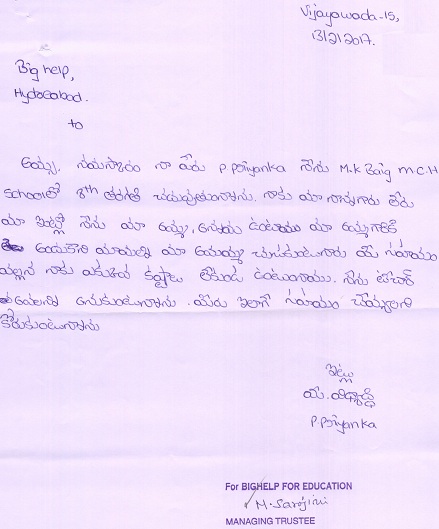 Vijayawada-15,
13/2/2017.
Big help,
Hyderabad.
to
అయ్యా, నమస్కారం నా పేరు P. Priyanka నేను M.K Baig M.C.H
School లో 8th తరగతి చదువుతున్నాను. నాకు మా నాన్నగారు లేరు
మా ఇంట్లో నేను మా అమ్మ, ఉంటాము మా అమ్మగారికి
మా అమ్మమ్మ చూసుకుంటున్నారు మీ సహాయం
వలన నాకు ఎటువంటి కష్టాలు లేకుండా ఉంటున్నాను. నేను టీచర్
అవ్వాలని అనుకుంటున్నాను. మీరు ఇలాగే సహాయం చేయ్యాలని
కోరుకుంటున్నాను
ఇట్లు
P. Priyanka
For BIGHELP FOR EDUCATION
M. Sarojini
MANAGING TRUSTEE